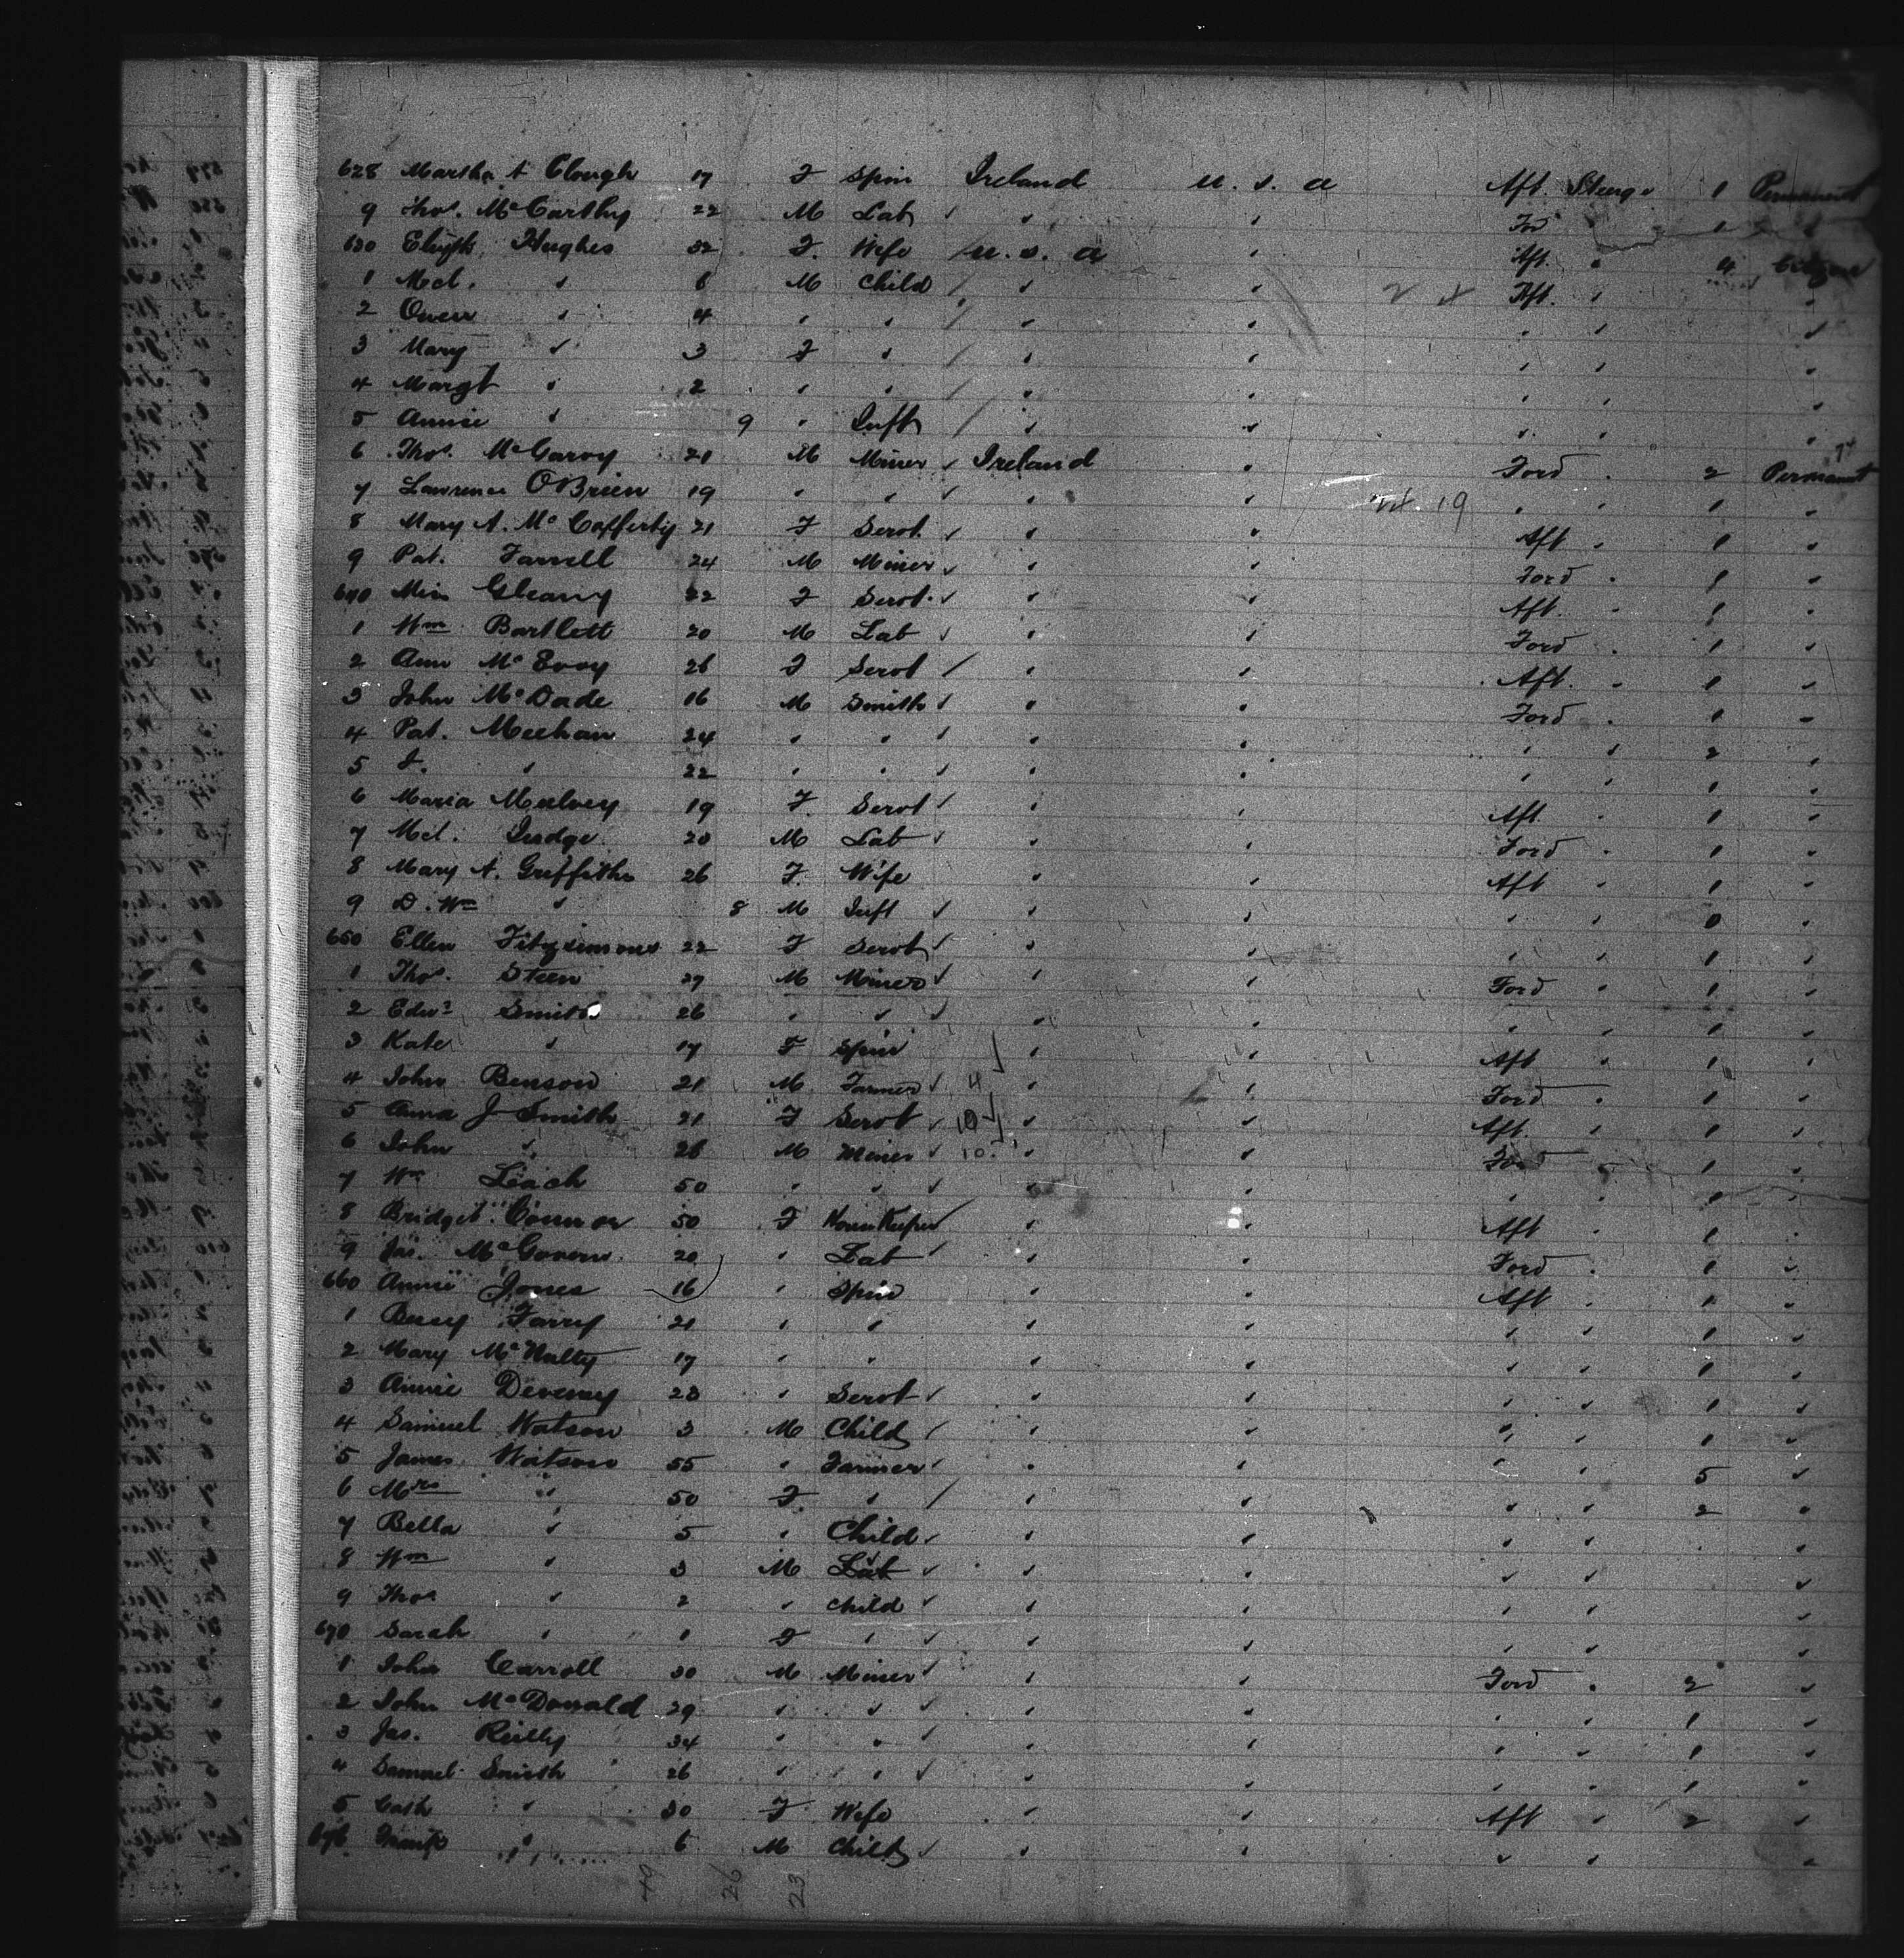 628 Martha A Clough 17 F Spin Ireland U. S. A Aft. Steerge 1 Permanent
9 Thos. McCarthy 22 M Lab ✓ " " For 1
630 Elizth Hughes 32 F. Wife / U. S. A " Aft. " 4 Citizen
1 Mcl. " 6 M Child / " " Aft. " "
2 Owen " 4 " " / " " " " "
3 Mary " 3 F " / " " " " "
4 Margt " 2 " " / " " " " "
5 Annie " 9 " Inft / " " " " "
6 Thos. McGarvy 21 M Miner ✓ Ireland " Ford " 2 Permanent
7 Lawrence OBrien 19 " " ✓ " " " " 1 "
8 Mary A. McCafferty 21 F Servt. ✓ " " Aft " 1 "
9 Pat. Farrell 24 M Miner ✓ " " Ford " 1 "
640 Min Gleany 22 F Servt. ✓ " " Aft. " 1 "
1 Wm Bartlett 20 M Lab ✓ " " Ford " 1 "
2 Ann McEvoy 26 F Servt / " " Aft. " 1 "
3 John McDade 16 M Smith ✓ " " Ford " 1 "
4 Pat. Meehan 24 " " ✓ " " " " 2 "
5 J. " 22 " " ✓ " " " " 1 "
6 Maria Mulvey 19 F. Servt ✓ " " Aft " 1 "
7 Mcl. Judge 20 M Lab ✓ " " Ford " 1 "
8 Mary A. Griffiths 26 F. Wife " " Aft " 1 "
9 D. Wm " 8 M Inft ✓ " " " " 0 "
650 Ellen Fitzsimmons 22 F Servt ✓ " " " " 1 "
1 Thos. Steen 27 M Miner ✓ " " Ford " 1 "
2 Edwd Smith 26 " " ✓ " " " " 1 "
3 Kate " 17 F Spin " " Aft " 1 "
4 John Benson 21 M. Farmer ✓ 4 " " Ford " 1 "
5 Anna J Smith 21 F Servt ✓ 10 " " Aft. " 1 "
6 John " 26 M Miner ✓ 10. " " Ford " 1 "
7 Wm Leach 50 " " ✓ " " " " 1 "
8 Bridget Connor 50 F HouseKeeper ✓ " " Aft " 1 "
9 Jas. McGovern 20 " Lab ✓ " " Ford " 1 "
660 Annie Jones 16 " Spin " " Aft " 1 "
1 Farry 21 " " " " " " 1 "
2 Mary McNulty 17 " " " " " " 1 "
3 Annie Deveney 23 " Servt ✓ " " " " 1 "
4 Samuel Watson 3 M Child ✓ " " " " 1 "
5 James Watson 55 " Farmer ✓ " " " " 5 "
6 Mrs " 50 F. " / " " " " 2 "
7 Bella " 5 " Child ✓ " " " " "
8 Wm " 3 M Lab ✓ " " " " "
9 Thos " 2 " Child ✓ " " " " "
670 Sarah " 1 F " ✓ " " " " "
1 John Carroll 30 M Miner ✓ " " Ford " 2 "
2 John McDonald 29 " " ✓ " " " " 1 "
3 Jas. Reilly 34 " " ✓ " " " " 1 "
4 Samuel Smith 26 " " ✓ " " " " 1 "
5 Cath " 30 F Wife " " Aft " 2 "
676 " 6 M Child ✓ " " " " "
49 26 23